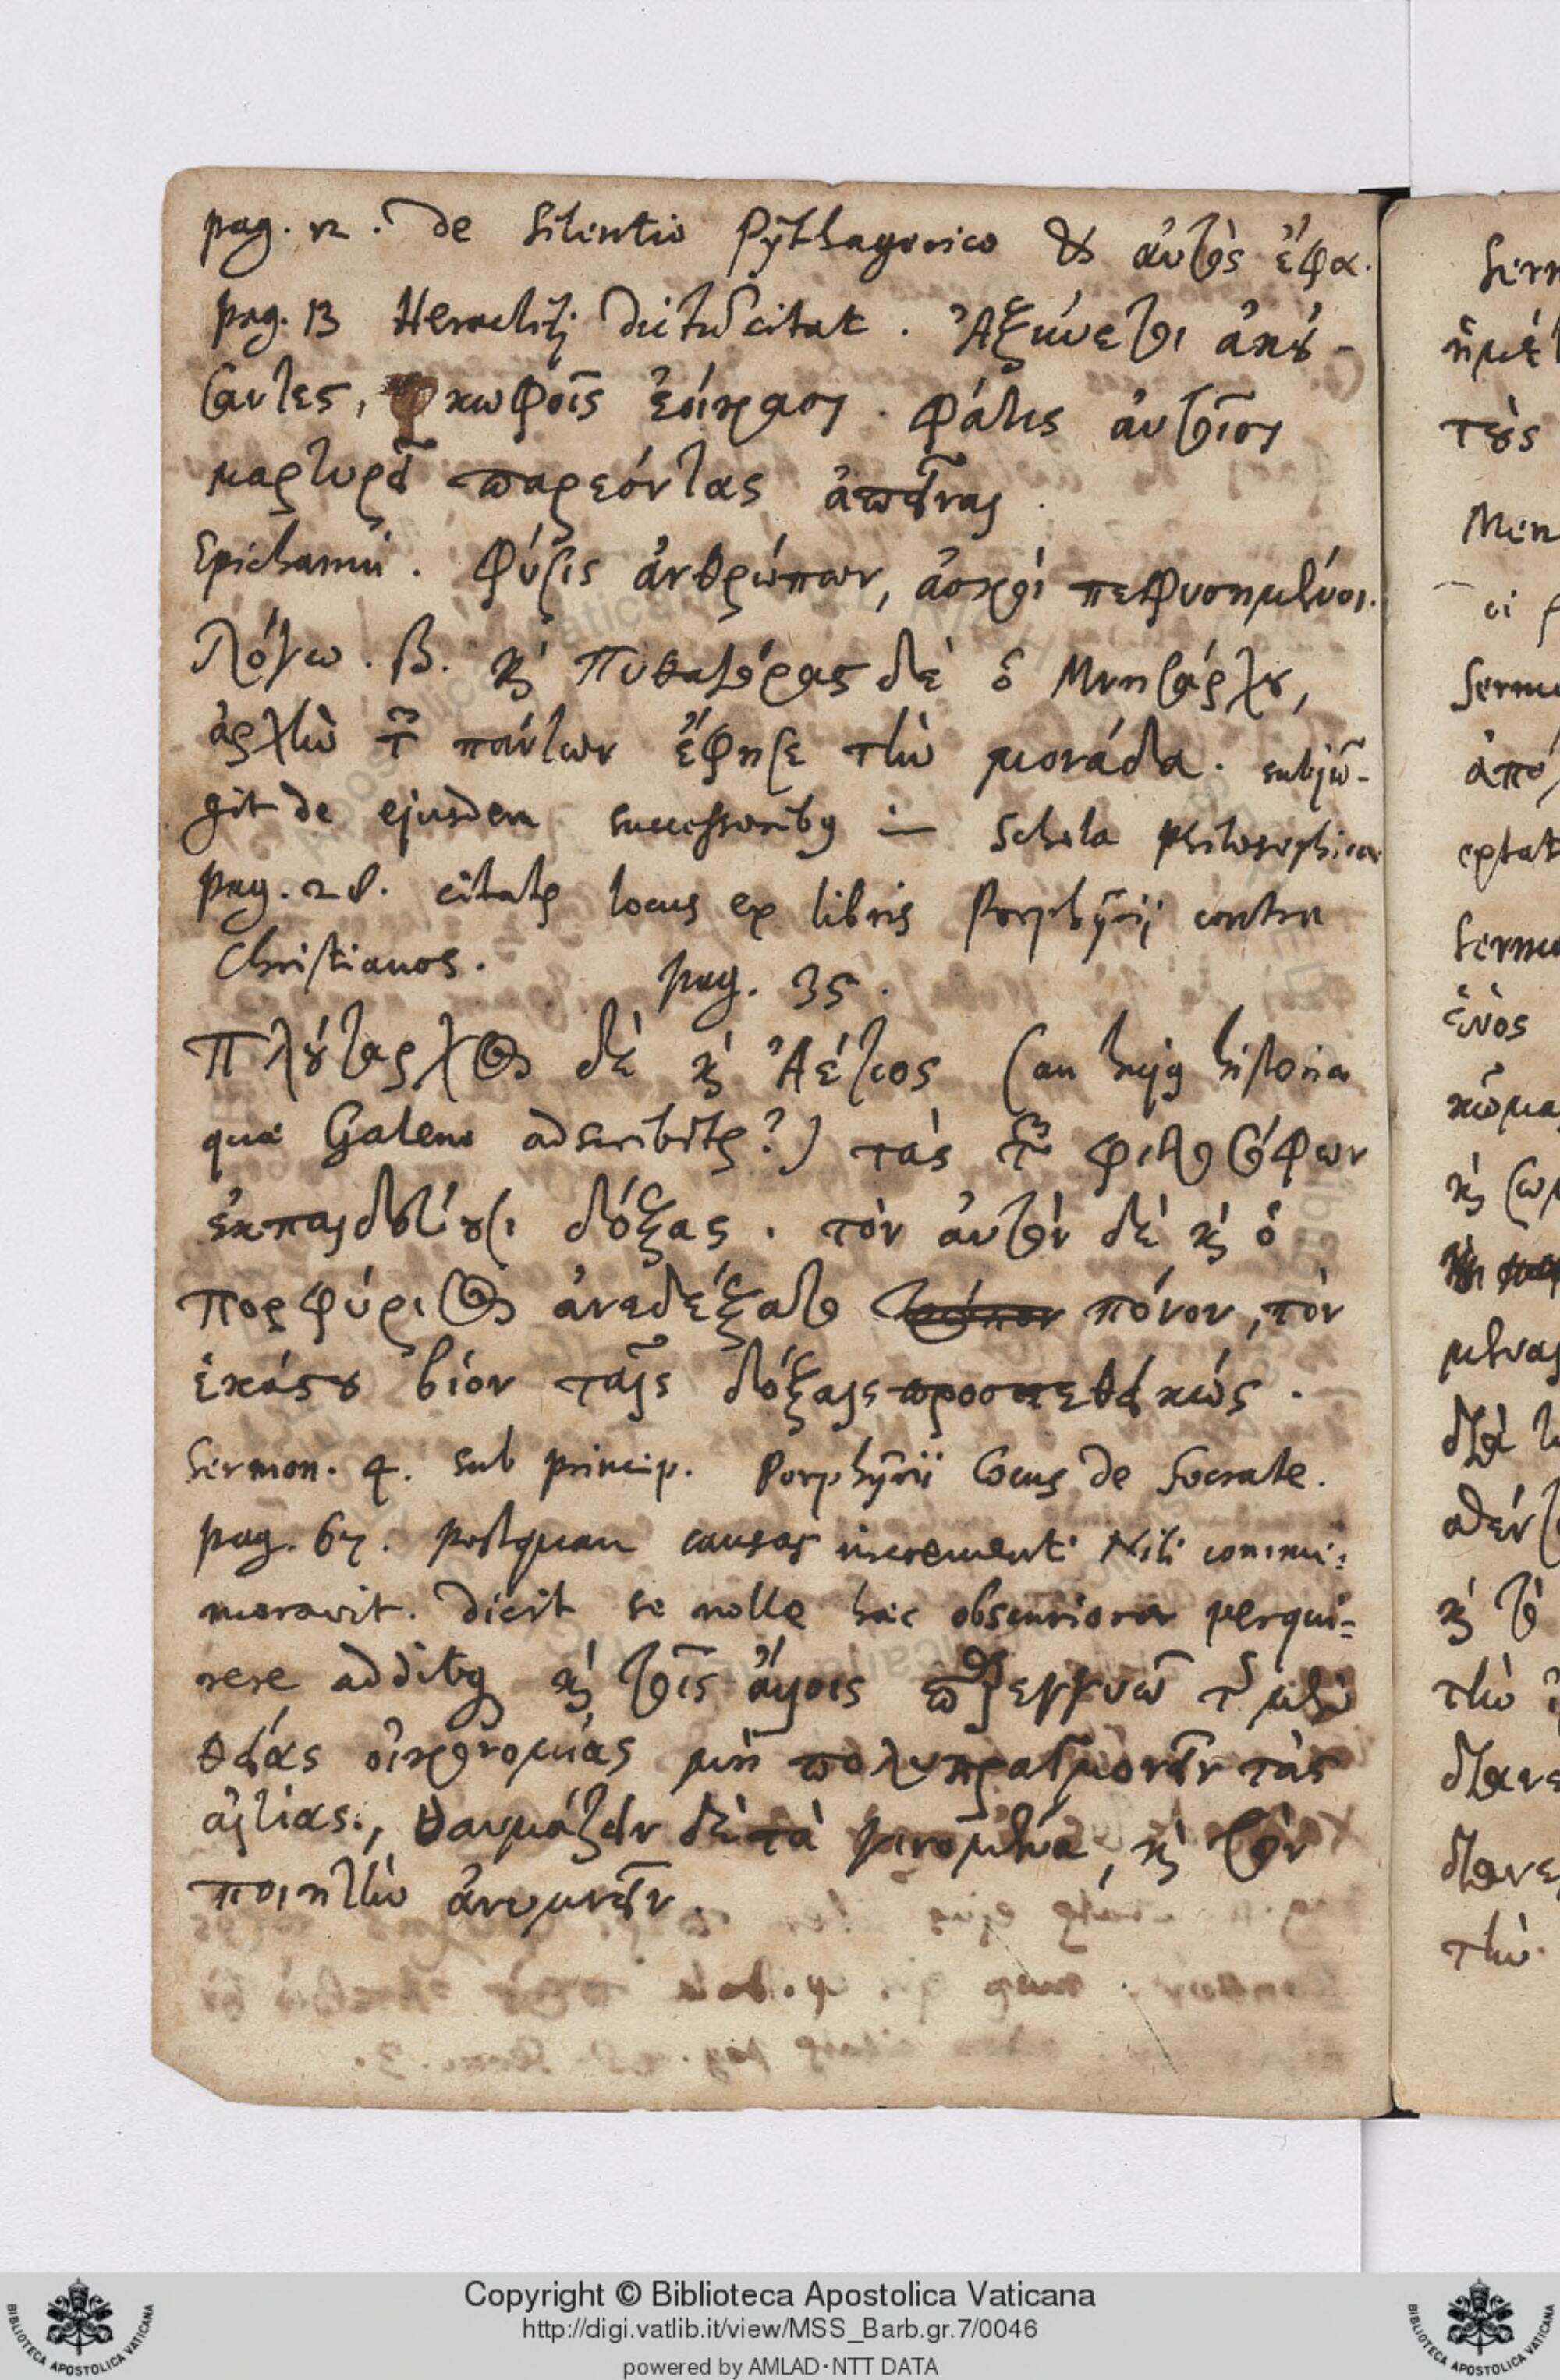 pag. 12. de Silentio Pythagorico & ἀυτὸς ἔφα.
pag. 13 Heracliti dictū citat. Ἀξύνετοι ἀκού-
σαντες, κωφοῖς ἐοίκασι. Φάτις ἀυτοῖσι
μαρτυρεῖ παρεόντας ἀπεῖναι.
Epicharmi. Φύσις ἀνθρώπων, ἀσκοὶ πεφυσημένοι.
Λόγω. β. καὶ Πυθαγόρας δὲ ὁ Μνησάρχου,
ἀρχὴν τῶν πάντων ἔφησε τὴν μονάδα. subjū-
git de ejusdem successoribus in Schola philosophica
pag. 28. citatur locus ex libris Porphyrii contra
Christianos. pag. 35.
Πλούταρχος δὲ καὶ Ἀέτιος (an hujus historia
quae Galeno adscribitur?) τὰς τῶν φιλοσόφων
ἐκπαιδεύουσι δόξας. τὸν ἀυτὸν δὲ καὶ ὁ
Πορφύριος ἀνεδέξατο πόνον, τὸν
ἑκάστου βίον ταῖς δόξαις προστεθεικώς.
Sermon. 4. sub princip. Porphyrii locus de Socrate.
pag. 67. postquam causas incrementi Nili comme:
moravit. dicit se nolle haec obscuriora perqui=
rere additus καὶ τοῖς ἄλλοις παρεγγυῶ τῆς μὲν
θείας οἰκονομίας μὴ πολυπραγμονεῖν τὰς
αἰτίας., θαυμάζειν δὲ τὰ γινόμενα, καὶ τὸν
ποιητὴν ἀνυμνεῖν.
Copyright © Biblioteca Apostolica Vaticana
http://digi.vatlib.it/view/MSS_Barb.gr.7/0046
powered by AMLAD·NTT DATA